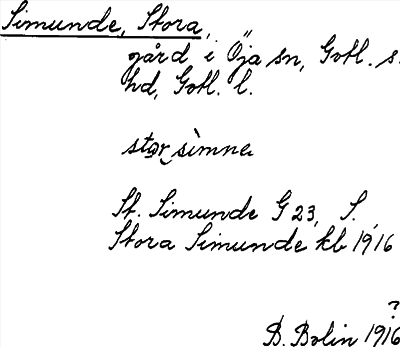 Simunde, Stora,
gård i Öja sn, Gotl. s.
hd, Gotl. l.
stor simne
St. Simunde G 23, S.
Stora Simunde kb 1916
?
D. Bolin 1916